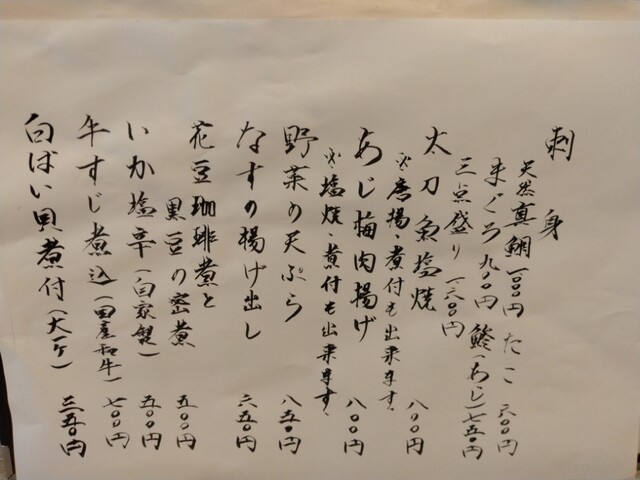 刺身
天然真鯛一一〇〇円 たこ 六〇〇円
まぐろ九〇〇円 鯵(あじ)七五〇円
三点盛り一六〇〇円
太刀魚塩焼 八〇〇円
※唐揚・煮付も出来ます。
あじ梅肉揚げ 八〇〇円
※塩焼・煮付も出来ます。
野菜の天ぷら 八五〇円
なすの揚げ出し 六五〇円
花豆珈琲煮と
黒豆の蜜煮 五〇〇円
いか塩辛(自家製) 五〇〇円
牛すじ煮込(国産和牛) 七〇〇円
白ばい貝煮付(大一ヶ) 三五〇円